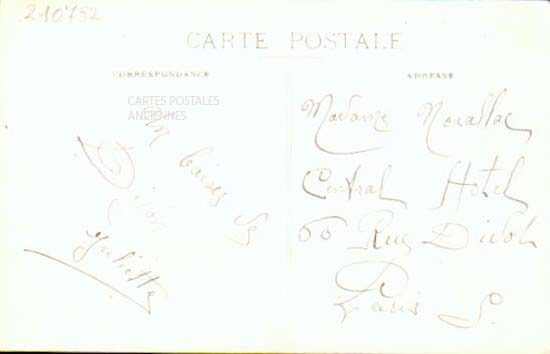 2-10752
CARTE POSTALE
CORRESPONDANCE
CARTES POSTALES
ANCIENNES
baises de
Dijon
Juliette
ADRESSE
Madame
Central Hotel
60 Rue Didot
Paris